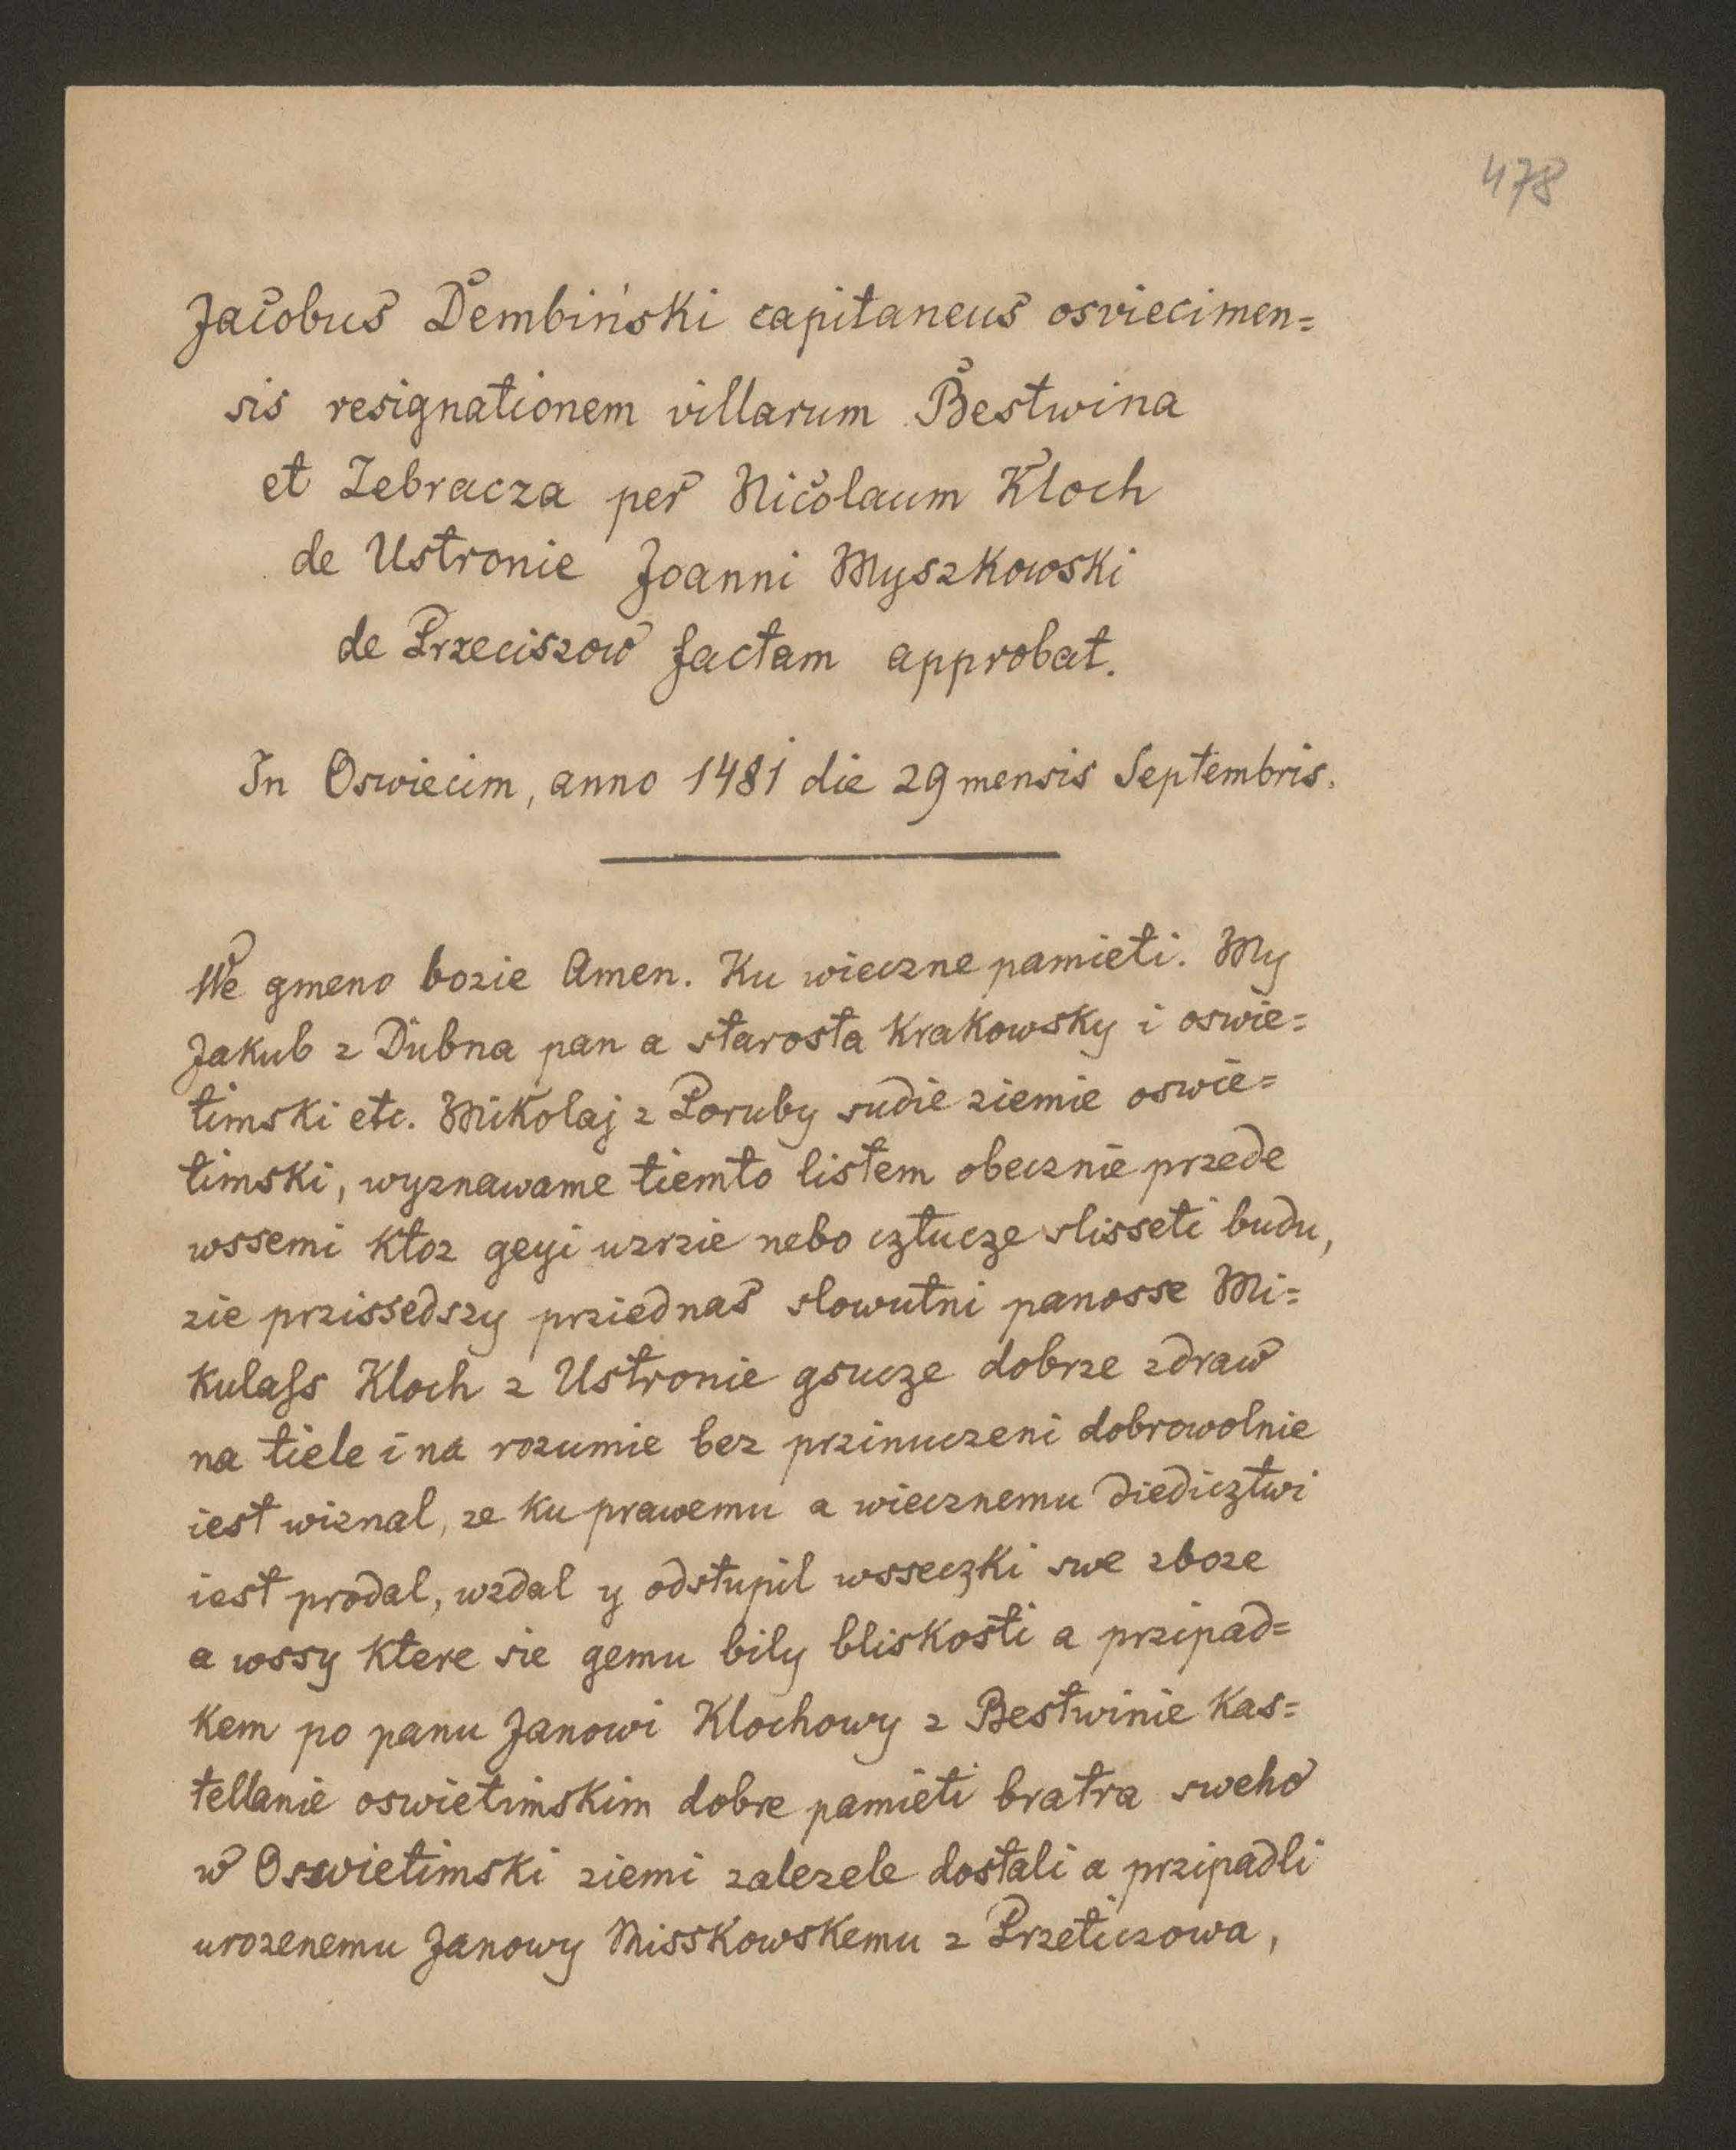 478
Jacobus Dembiński capitaneus osviecimen=
sis resignationem villarum Bestwina
et Zebracza per Nicolaum Kloch
de Ustronie Joanni Myszkowski
de Przeciszow factam approbat.
In Oswiecim, anno 1481 die 29 mensis Septembris.
We gmeno bozie Amen. Ku wieczne pamieti. My
Jakub z Dubna pan a starosta Krakowsky i oswie=
timski etc. Mikolaj z Poruby sudie ziemie oswie=
timski, wyznawame tiemto listem obecznie przede
wssemi ktoz geyi uzrzie nebo cztucze slisseti budu,
zie przissedszy prziednas slowutni panosse Mi=
kulass Kloch z Ustronie gsucze dobrze zdraw
na tiele i na rozumie bez przinuczeni dobrowolnie
iest wiznal, ze ku prawemu a wiecznemu diedicztwi
iest prodal, wzdal y odstupil wsseczki swe zboze
a wssy ktere sie gemu bily bliskosti a przipad=
kem po panu Janowi Klochowy z Bestwinie kas=
tellanie oswietimskim dobre pamieti bratra sweho
w Osswietimski ziemi zalezele dostali a przipadli
urozenemu Janowy Misskowskemu z Przeticzowa,